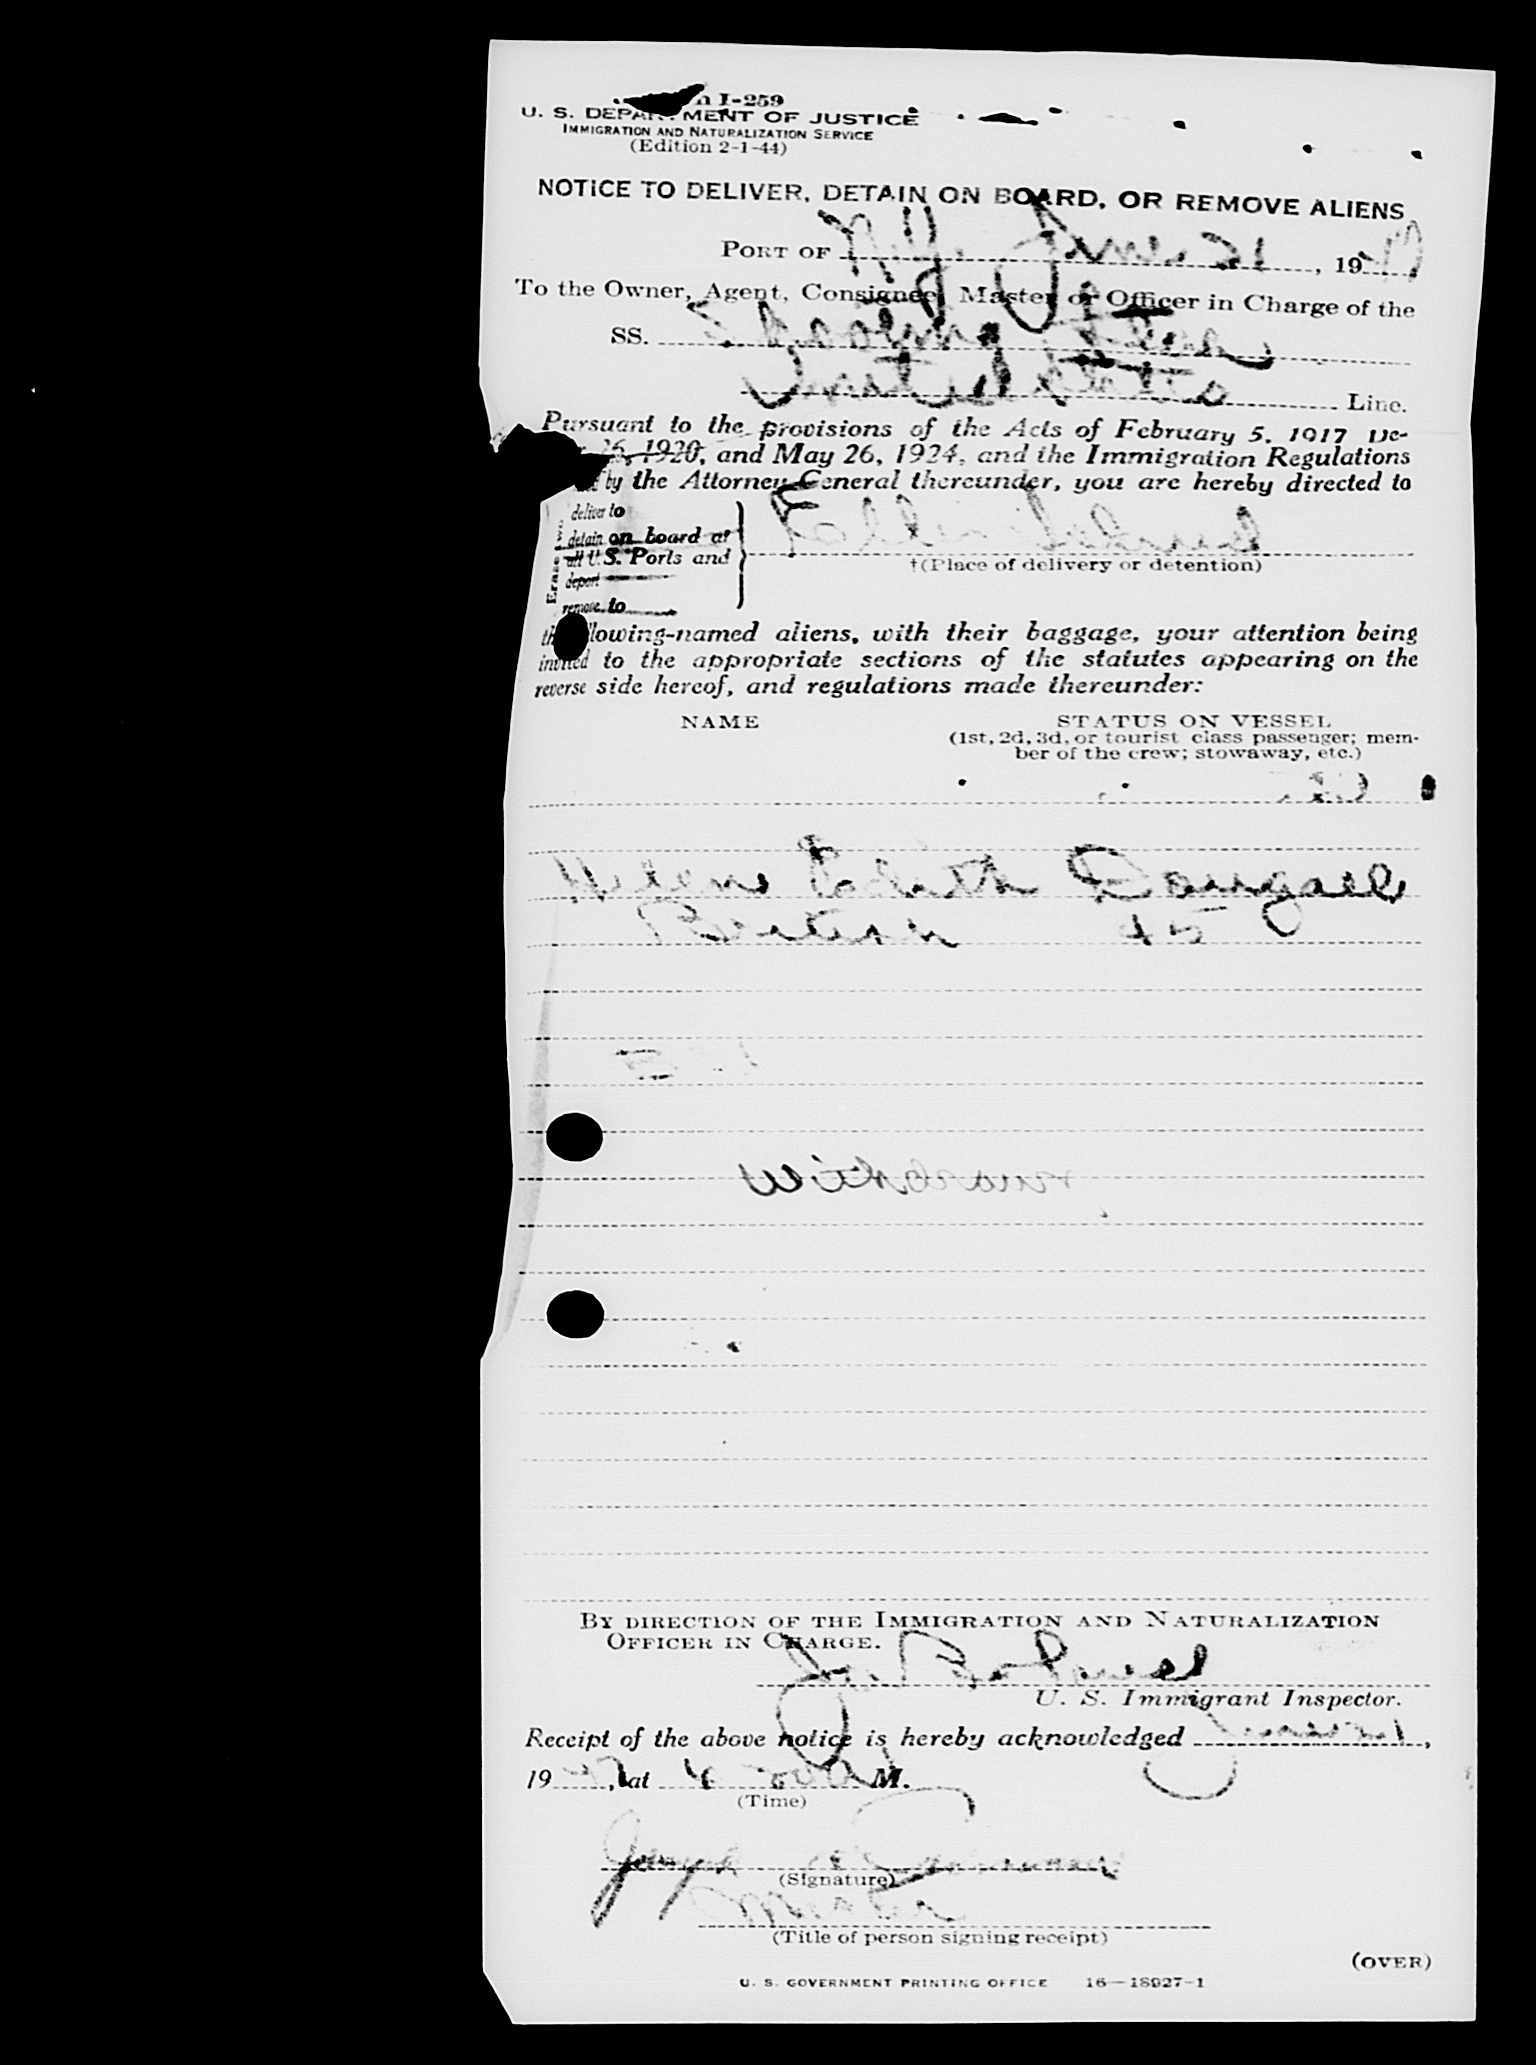 I-259
U. S. DEPARTMENT OF JUSTICE
IMMIGRATION AND NATURALIZATION SERVICE
(Edition 2-1-44)
NOTICE TO DELIVER, DETAIN ON BOARD, OR REMOVE ALIENS
PORT OF N.Y. June 21, 1947
To the Owner, Agent, Consignee, Master or Officer in Charge of the
SS. Shooting Star
United States Line.
Pursuant to the provisions of the Acts of February 5, 1917 De-
26, 1920, and May 26, 1924, and the Immigration Regulations
by the Attorney General thereunder, you are hereby directed to
deliver to
detain on board at
all U.S. Ports and
deport
remove to
Ellis Island
†(Place of delivery or detention)
the following-named aliens, with their baggage, your attention being
invited to the appropriate sections of the statutes appearing on the
reverse side hereof, and regulations made thereunder:
NAME STATUS ON VESSEL
(1st, 2d, 3d, or tourist class passenger; mem-
ber of the crew; stowaway, etc.)
Helene Edith
45
BY DIRECTION OF THE IMMIGRATION AND NATURALIZATION
OFFICER IN CHARGE.
U. S. Immigrant Inspector.
Receipt of the above notice is hereby acknowledged June 21,
1947, at M.
(Time)
(Signature)
Master
(Title of person signing receipt)
(OVER)
U. S. GOVERNMENT PRINTING OFFICE 16—18927-1